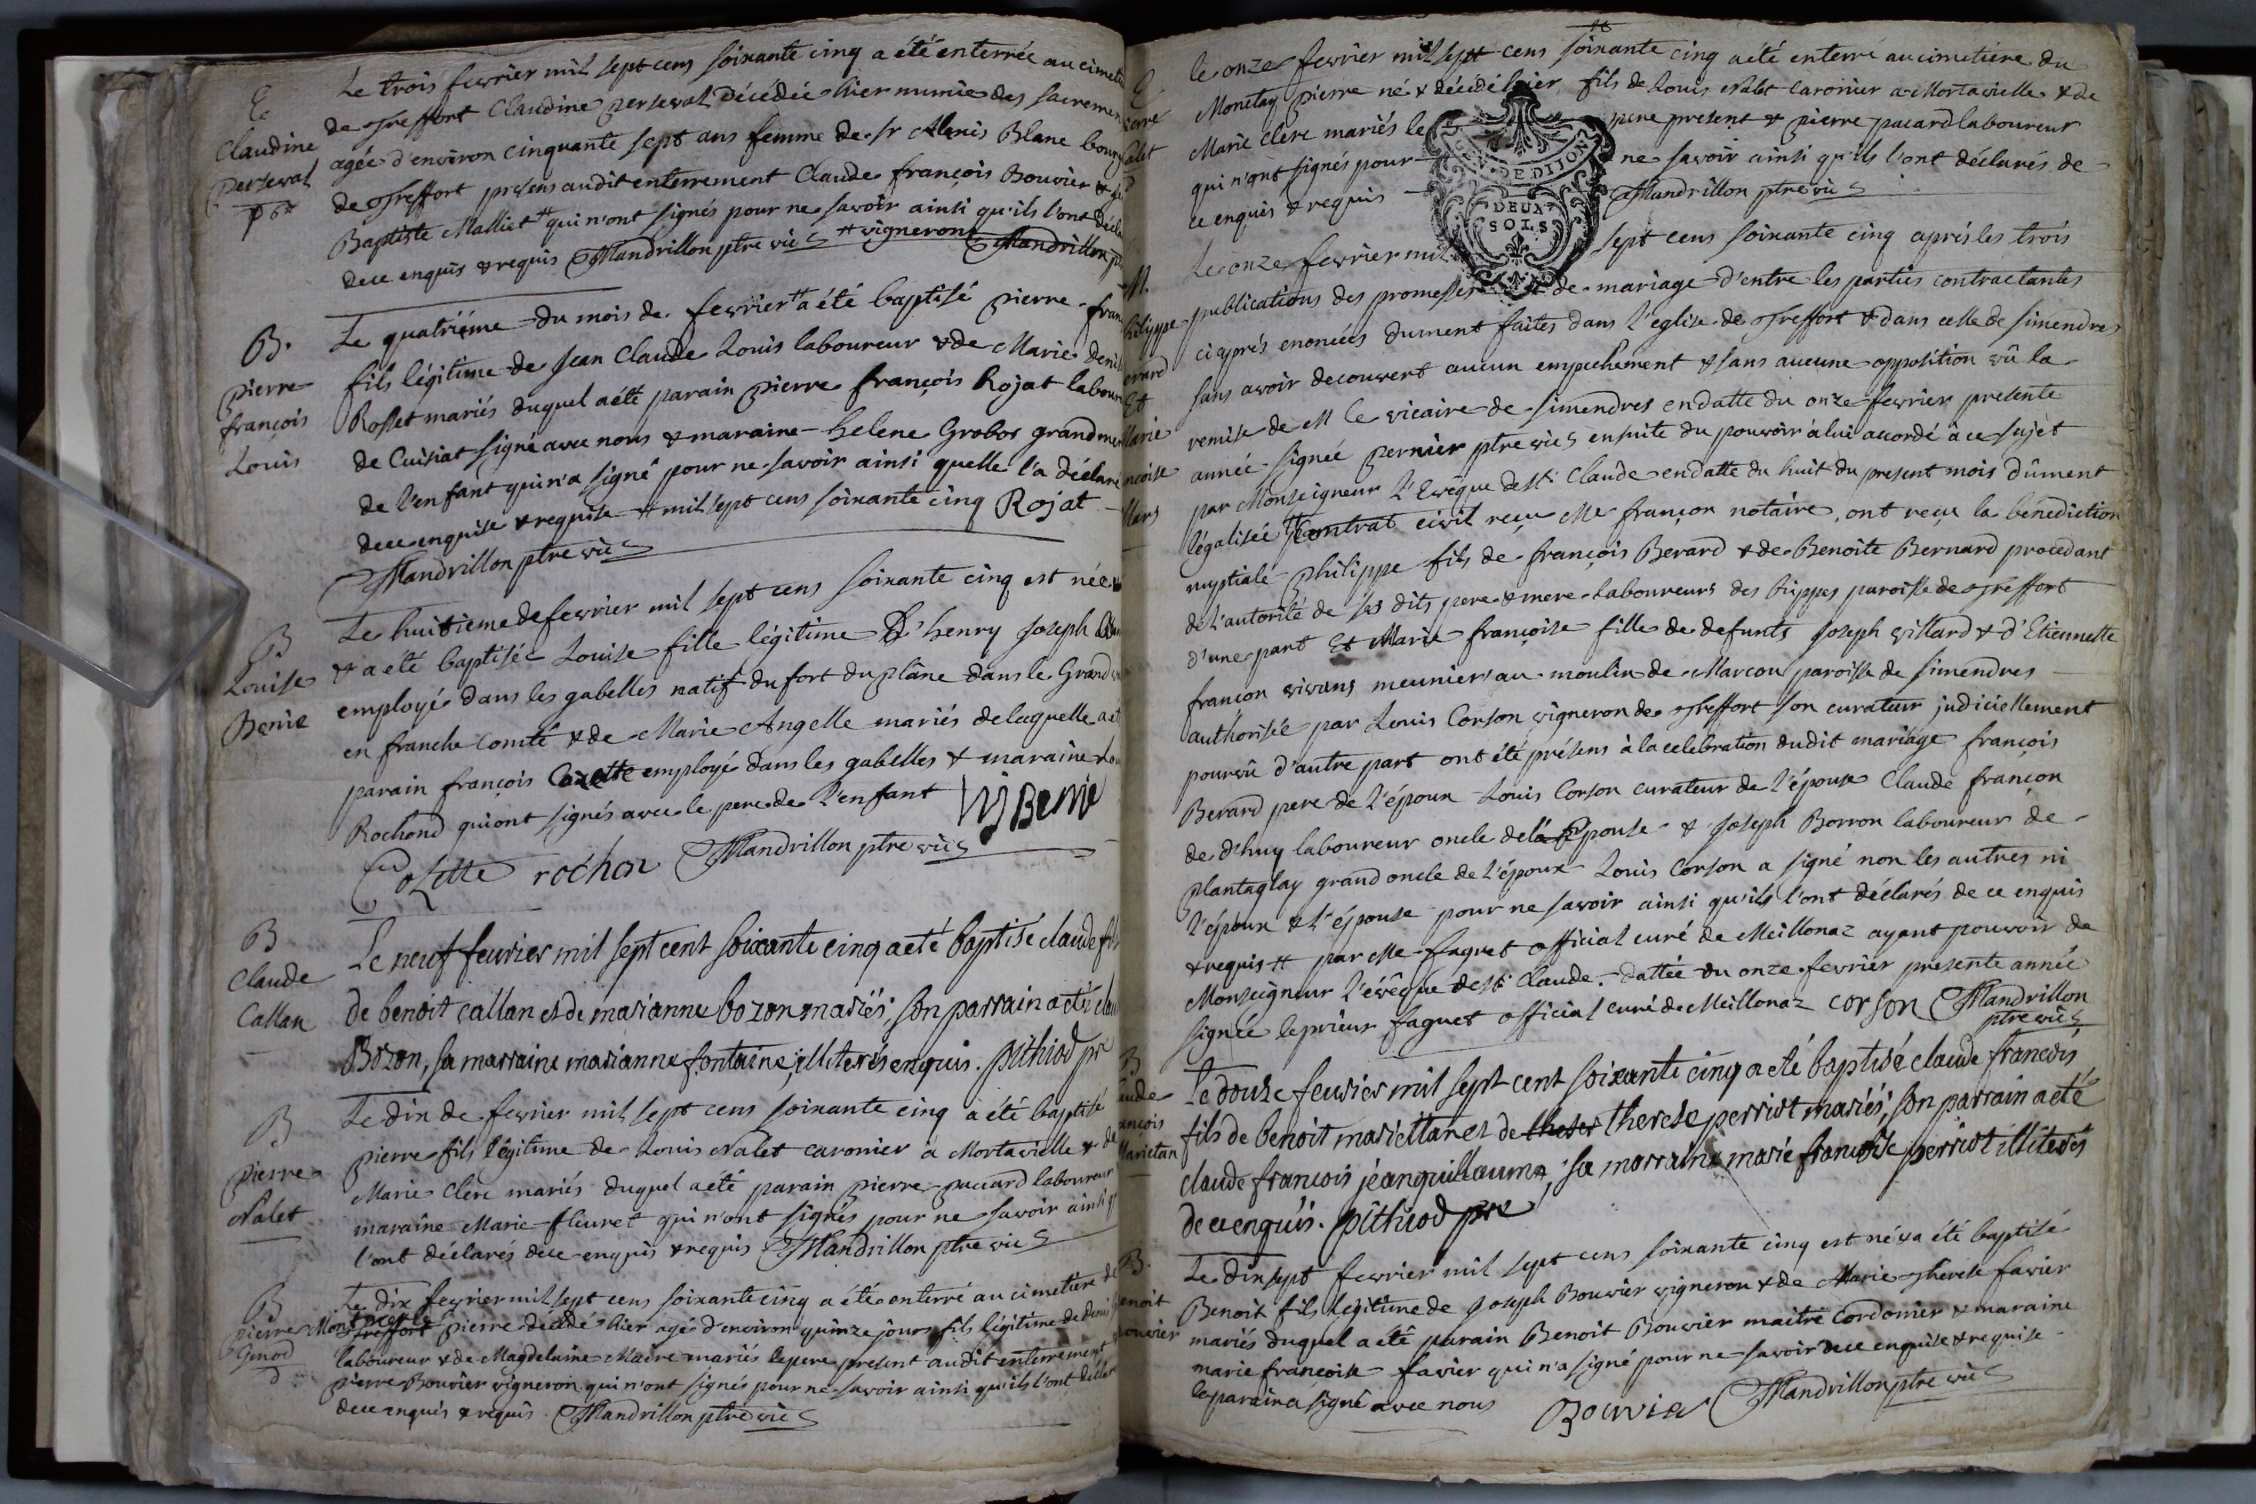 E
Claudine
Perseval
Le trois fevrier mil sept cens soixante cinq a été enterrée au cimeti
de Treffort Claudine Perseval décédée hier munie des sacremen
agée d'environ cinquante sept ans femme de Sr Alexis Blanc bourg
de Treffort présens audit enterrement Claude françois Bouvier &
Baptiste Malliet # qui n'ont signés pour ne savoir ainsi qu'ils l'ont décla
de ce enquis & requis Mandrillon ptre vic # vignerons Mandrillon
B.
Pierre
françois
Louis
Le quatriéme du mois de fevrier # a été baptisé Pierre fran
fils légitime de Jean Claude Louis laboureur & de Marie Deni
Rosset mariés duquel a été parain Pierre françois Rojat labour
de Cuisiat signé avec nous & maraine helene Grobos grandmer
de l'enfant qui n'a signé pour ne savoir ainsi quelle l'a déclaré
de ce enquise & requise # mil sept cens soixante cinq Rojat
Mandrillon ptre vic
B
Louise
Benie
Le huitieme de fevrier mil sept cens soixante cinq est née
& a été baptisée Louise fille légitime d'henry Joseph
employé dans les gabelles natif du fort du plâne dans le Grand
en franche Comté & de Marie Angelle mariés de laquelle a et
parain françois Colette employé dans les gabelles & maraine Lou
Rochond qui ont signés avec le pere de l'enfant HJ Benie
Colette rochon Mandrillon ptre vic
B
Claude
Callan
Le neuf feurier mil sept cent soixante cinq a eté baptisé claude fils
de benoit callan et de marianne bozon mariés; son parrain a eté clau
Bozon, sa marraine marianne fontaine; illiterés enquis. pithiod pre
B
Pierre
Nalet
Le dix de fevrier mil sept cens soixante cinq a été baptisé
Pierre fils légitime de Louis Nalet caronier à Mortavielle & de
Marie Clerc mariés duquel a été parain Pierre Pacard laboureur
maraine Marie fleuret qui n'ont signés pour ne savoir ainsi q
l'ont déclarés de ce enquis & requis Mandrillon ptre vic
Pierre
Ginod
Le dix fevrier mil sept cens soixante cinq a été enterré au cimetiere de
Treffort Pierre décédé hier agé d'environ quinze jours fils légitime de Denis
laboureur & de Magdelaine Maire mariés le pere present audit enterrement
Pierre Bouvier vigneron qui n'ont signés pour ne savoir ainsi qu'ils l'ont déclar
de ce enquis & requis. Mandrillon ptre vic
E
ierre
alet
le onze fevrier mil sept cens soixante cinq a été enterré au cimetiere du
Monetay Pierre né & décédé hier fils de Louis Nalet caronier a Mortavielle & de
Marie Clerc mariés le pere present & Pierre Pacard laboureur
qui n'ont signés pour ne savoir ainsi qu'ils l'ont déclarés de
ce enquis & requis Mandrillon ptre vic
GEN. DEDIION
DEUX
SOLS
M.
hilippe
erard
Et
Marie
ncoise
llard
Le onze fevrier mil sept cens soixante cinq aprés les trois
publications des promesses de mariage d'entre les parties contractantes
ci aprés enoncées dument faites dans l'eglise de Treffort & dans celle de Simendres
sans avoir decouvert aucun empechement & sans aucune opposition vû la
remise de M le vicaire de Simendres en datte du onze fevrier presente
année signée Pernier ptre vic ensuite du pouvoir à lui accordé à ce sujèt
par Monseigneur l'Evêque de St Claude en datte du huit du present mois dûment
légalisée # Contrat civil reçu Me françon notaire, ont reçu la bénédiction
nuptiale Philippe fils de françois Berard & de Benoite Bernard procedant
de l'autorité de ses dits pere & mere laboureurs des Rippes paroisse de Treffort
d'une part Et Marie françoise fille de defunts Joseph Villard & d'Etiennette
françon vivans meuniers au moulin de Marcou paroisse de Simendres
authorisée par Louis Corson vigneron de Treffort son curateur judiciellement
pourvû d'autre part ont été présens à la celebration dudit mariage françois
Berard pere de l'époux Louis Corson curateur de l'épouse Claude françon
de d'huy laboureur oncle de la Epouse & Joseph Borron laboureur de
Plantaglay grand oncle de l'époux Louis Corson a signé non les autres ni
l'époux & l'épouse pour ne savoir ainsi qu'ils l'ont déclarés de ce enquis
& requis # par Me faguet official curé de Meillonaz ayant pouvoir de
Monseigneur l'évêque de St Claude. Dattée du onze fevrier presente année
signée le prieur faguet official curé de Meillonaz corson Mandrillon
ptre vic
B
aude
ancois
Marietan
Le douze feurier mil sept cent soixante cinq a eté baptisé claude francois
fils de benoit mariettan et de theres therese perriot mariés; son parrain a eté
claude francois jeanguillaume; sa marraine marie francoise perriot illiterés
de ce enquis. pithiod pre
B.
enoit
ouvier
Le dix sept fevrier mil sept cens soixante cinq est né & a été baptisé
Benoit fils légitime de Joseph Bouvier vigneron & de Marie Therese favier
mariés duquel a été parain Benoit Bouvier maitre Cordonier & maraine
marie francoise favier qui n'a signé pour ne savoir de ce enquise & requise
le parain a signé avec nous Bouvier Mandrillon ptre vic